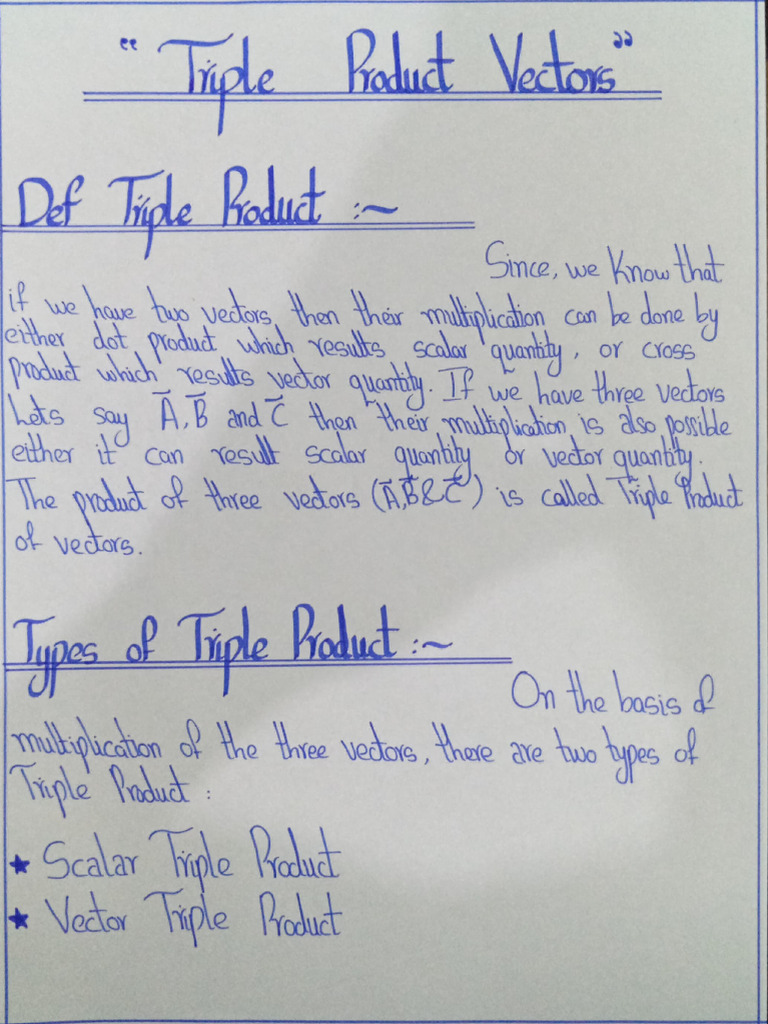 “ Triple Product Vectors ”
Def Triple Product :~
Since, we Know that
if we have two vectors, then their multiplication can be done by
either dot product which results scalar quantity, or cross
product which results vector quantity. If we have three vectors
Lets say A⃗, B⃗ and C⃗ then their multiplication is also possible
either it can result scalar quantity or vector quantity.
The product of three vectors (A⃗,B⃗&C⃗) is called Triple Product
of vectors.
Types of Triple Product :~
On the basis of
multiplication of the three vectors, there are two types of
Triple Product :
★ Scalar Triple Product
★ Vector Triple Product